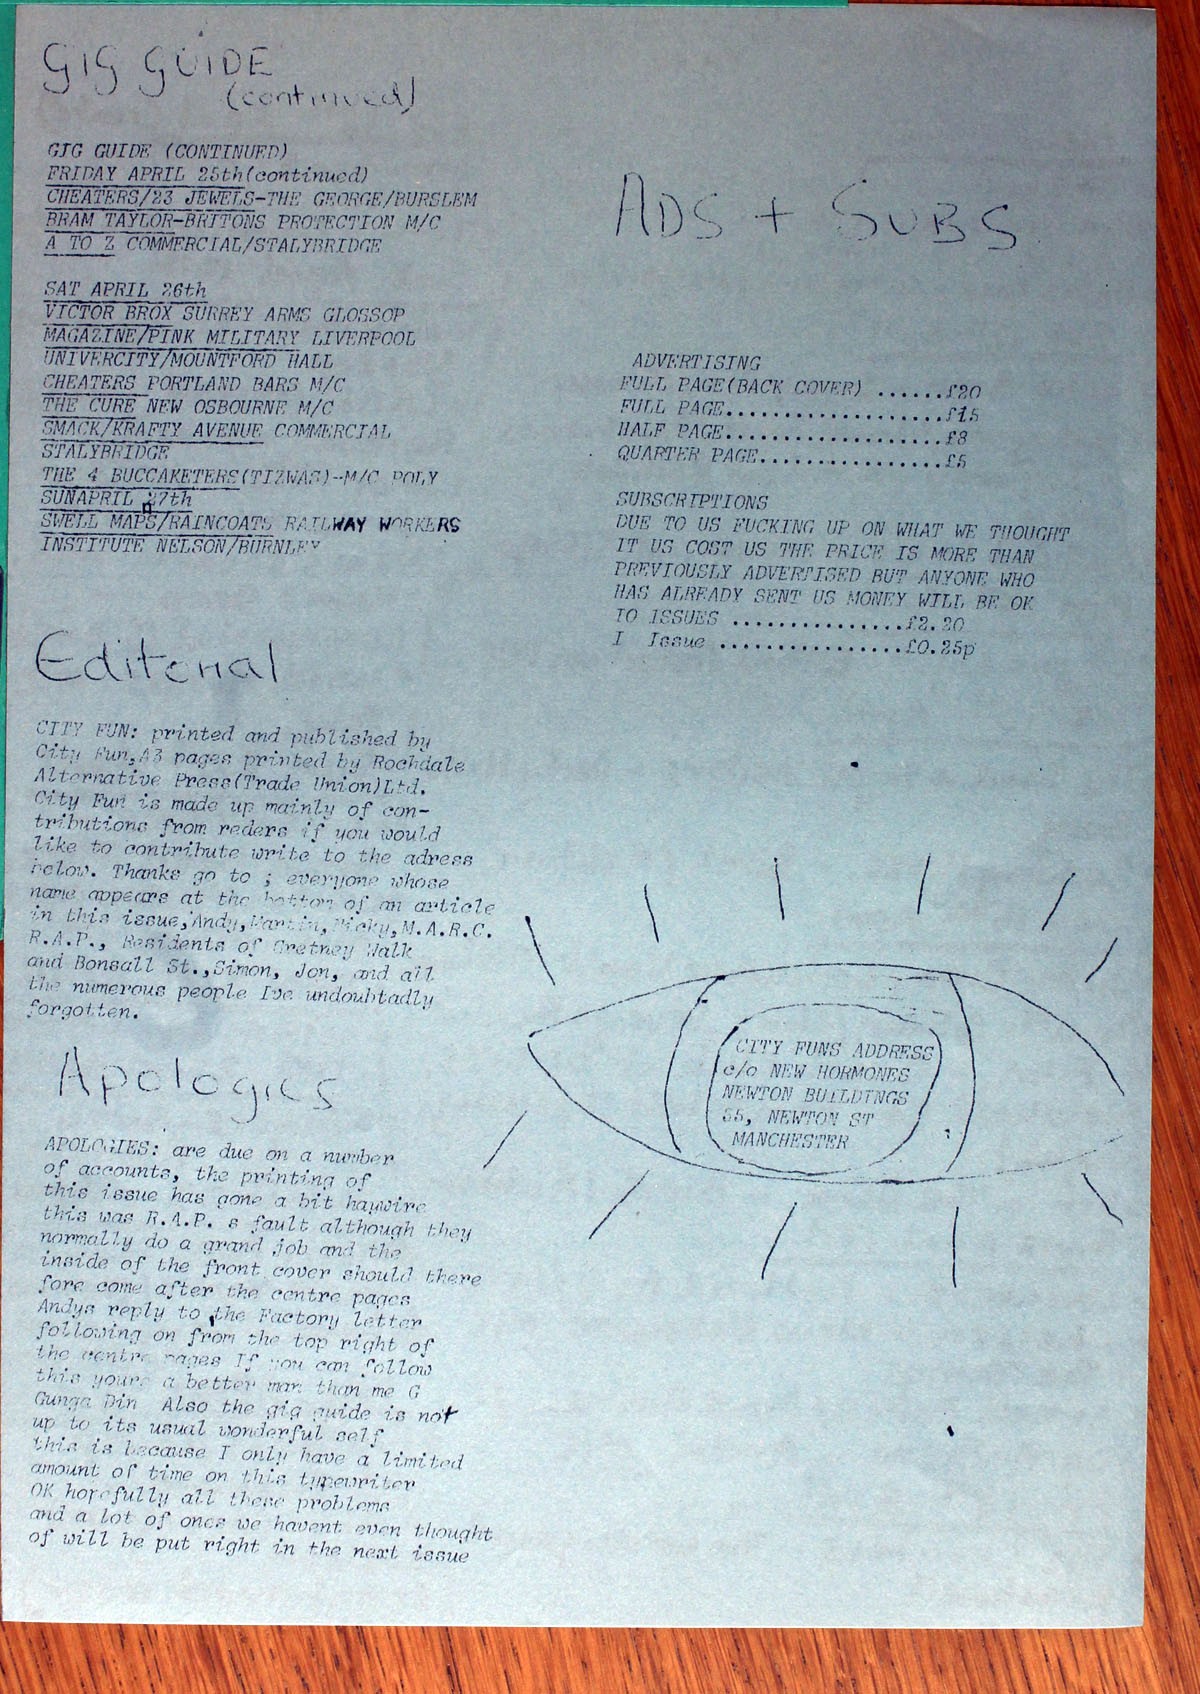 GIG GUIDE
(continued)
GIG GUIDE (CONTINUED)
FRIDAY APRIL 25th(continued)
CHEATERS/23 JEWELS-THE GEORGE/BURSLEM
BRAM TAYLOR-BRITONS PROTECTION M/C
A TO Z COMMERCIAL/STALYBRIDGE
SAT APRIL 26th
VICTOR BROX SURREY ARMS GLOSSOP
MAGAZINE/PINK MILITARY LIVERPOOL
UNIVERCITY/MOUNTFORD HALL
CHEATERS PORTLAND BARS M/C
THE CURE NEW OSBOURNE M/C
SMACK/KRAFTY AVENUE COMMERCIAL
STALYBRIDGE
THE 4 BUCCAKETERS(TIZWAS)-M/C POLY
SUNAPRIL 27th
SWELL MAPS/RAINCOATS RAILWAY WORKERS
INSTITUTE NELSON/BURNLEY
Editorial
CITY FUN: printed and published by
City Fun,A3 pages printed by Rochdale
Alternative Press(Trade Union)Ltd.
City Fun is made up mainly of con-
tributions from reders if you would
like to contribute write to the adress
below. Thanks go to ; everyone whose
name appears at the bottom of an article
in this issue,Andy,Martin,Micky,M.A.R.C.
R.A.P., Residents of Gretney Walk
and Bonsall St.,Simon, Jon, and all
the numerous people Ive undoubtadly
forgotten.
Apologies
APOLOGIES: are due on a number
of accounts, the printing of
this issue has gone a bit haywire
this was R.A.P. s fault although they
normally do a grand job and the
inside of the front cover should there
fore come after the centre pages
Andys reply to the Factory letter
following on from the top right of
the centre pages If you can follow
this youre a better man than me G
Gunga Din Also the gig guide is not
up to its usual wonderful self
this is because I only have a limited
amount of time on this typewriter
OK hopefully all these problems
and a lot of ones we havent even thought
of will be put right in the next issue
ADS + SUBS
ADVERTISING
FULL PAGE(BACK COVER) ......£20
FULL PAGE...................£15
HALF PAGE...................£8
QUARTER PAGE................£5
SUBSCRIPTIONS
DUE TO US FUCKING UP ON WHAT WE THOUGHT
IT US COST US THE PRICE IS MORE THAN
PREVIOUSLY ADVERTISED BUT ANYONE WHO
HAS ALREADY SENT US MONEY WILL BE OK
IO ISSUES ...............£2.20
I Issue ................£0.25p
CITY FUNS ADDRESS
c/o NEW HORMONES
NEWTON BUILDINGS
NEWTON ST
MANCHESTER